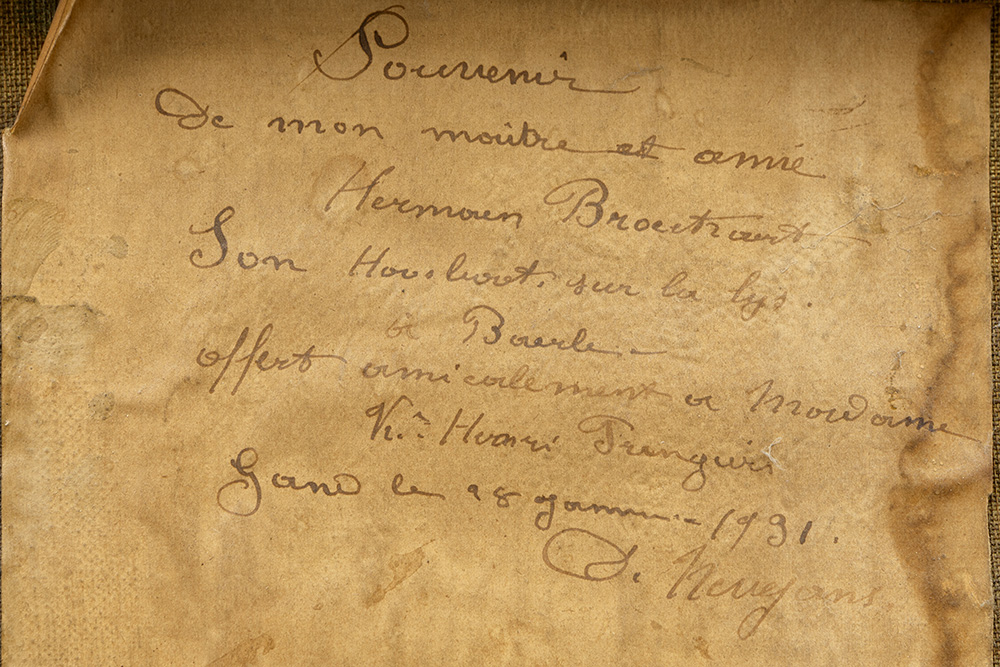 Souvenir
De mon maître et amie
Hermaen Broeckaert
Son Housboot. sur la lys.
à Baerle -
offert amicalement a Madame
Henri
Gand le 28 1931.
D. Neuyans